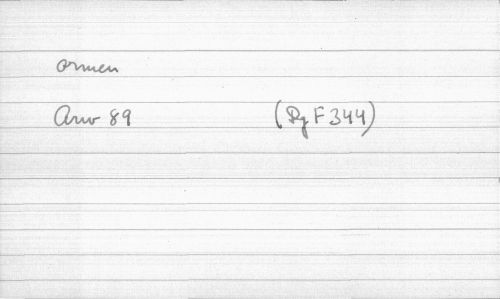 ormen
Arw 89 (Rg F 344)